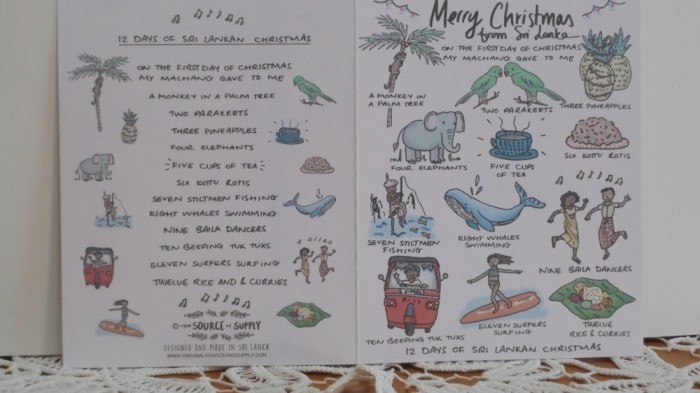 12 DAYS OF SRI LANKAN CHRISTMAS
ON THE FIRST DAY OF CHRISTMAS
MY MACHANG GAVE TO ME
A MONKEY IN A PALM TREE
TWO PARAKEETS
THREE PINEAPPLES
FOUR ELEPHANTS
FIVE CUPS OF TEA
SIX KOTTU ROTIS
SEVEN STILTMEN FISHING
EIGHT WHALES SWIMMING
NINE BAILA DANCERS
TEN BEEPING TUK TUKS
ELEVEN SURFERS SURFING
TWELVE RICE AND & CURRIES
© THE SOURCE OF SUPPLY
DESIGNED AND MADE IN SRI LANKA
Merry Christmas
from Sri Lanka
ON THE FIRST DAY OF CHRISTMAS
MY MACHANG GAVE TO ME
A MONKEY IN
A PALM TREE
TWO PARAKEETS
THREE PINEAPPLES
FOUR ELEPHANTS
FIVE CUPS
OF TEA
SIX KOTTU ROTIS
SEVEN STILTMEN
FISHING
EIGHT WHALES
SWIMMING
NINE BAILA DANCERS
TEN BEEPING TUK TUKS
ELEVEN SURFERS
SURFING
TWELVE
RICE & CURRIES
12 DAYS OF SRI LANKAN CHRISTMAS